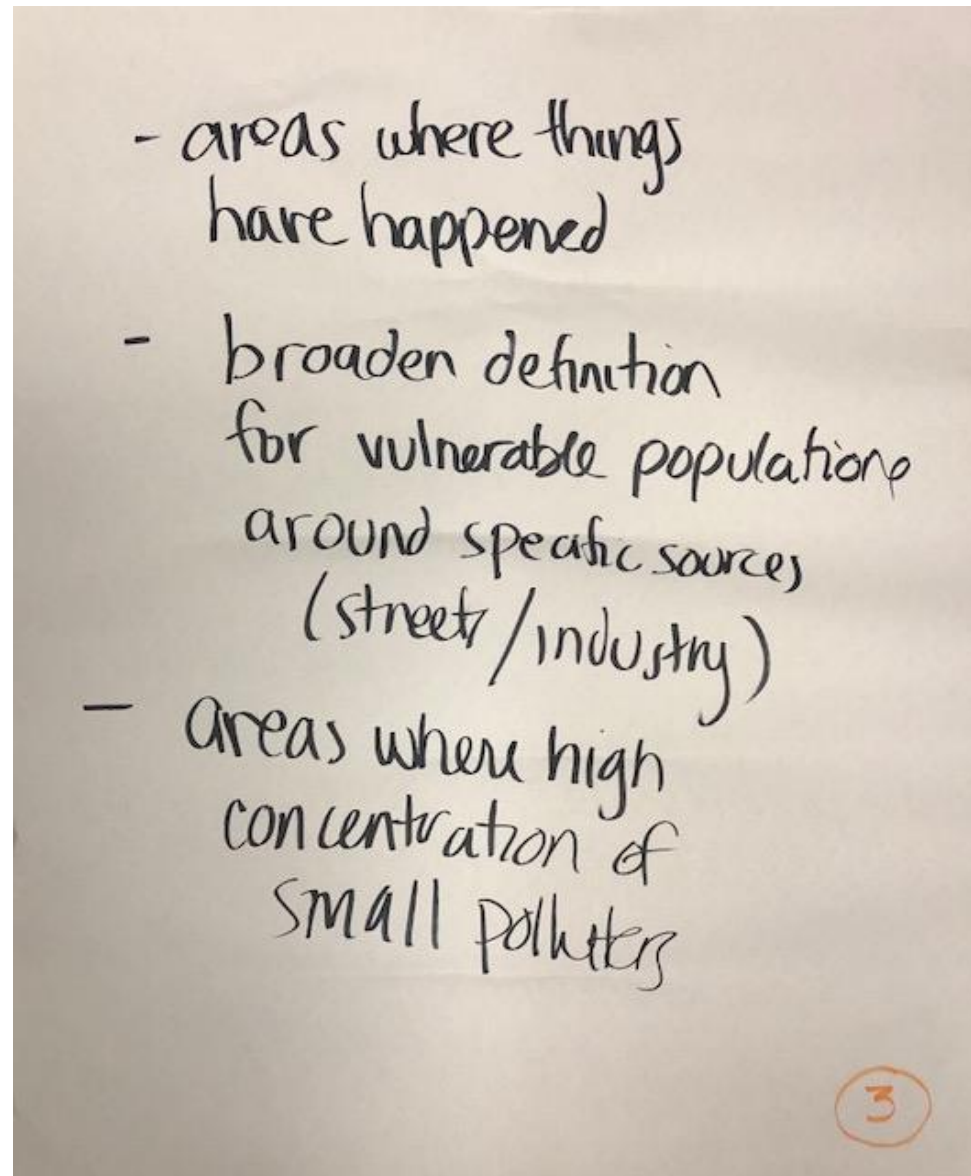 - areas where things
have happened
- broaden definition
for vulnerable populations
around specific sources
(streets/industry)
- areas where high
concentration of
small polluters
3